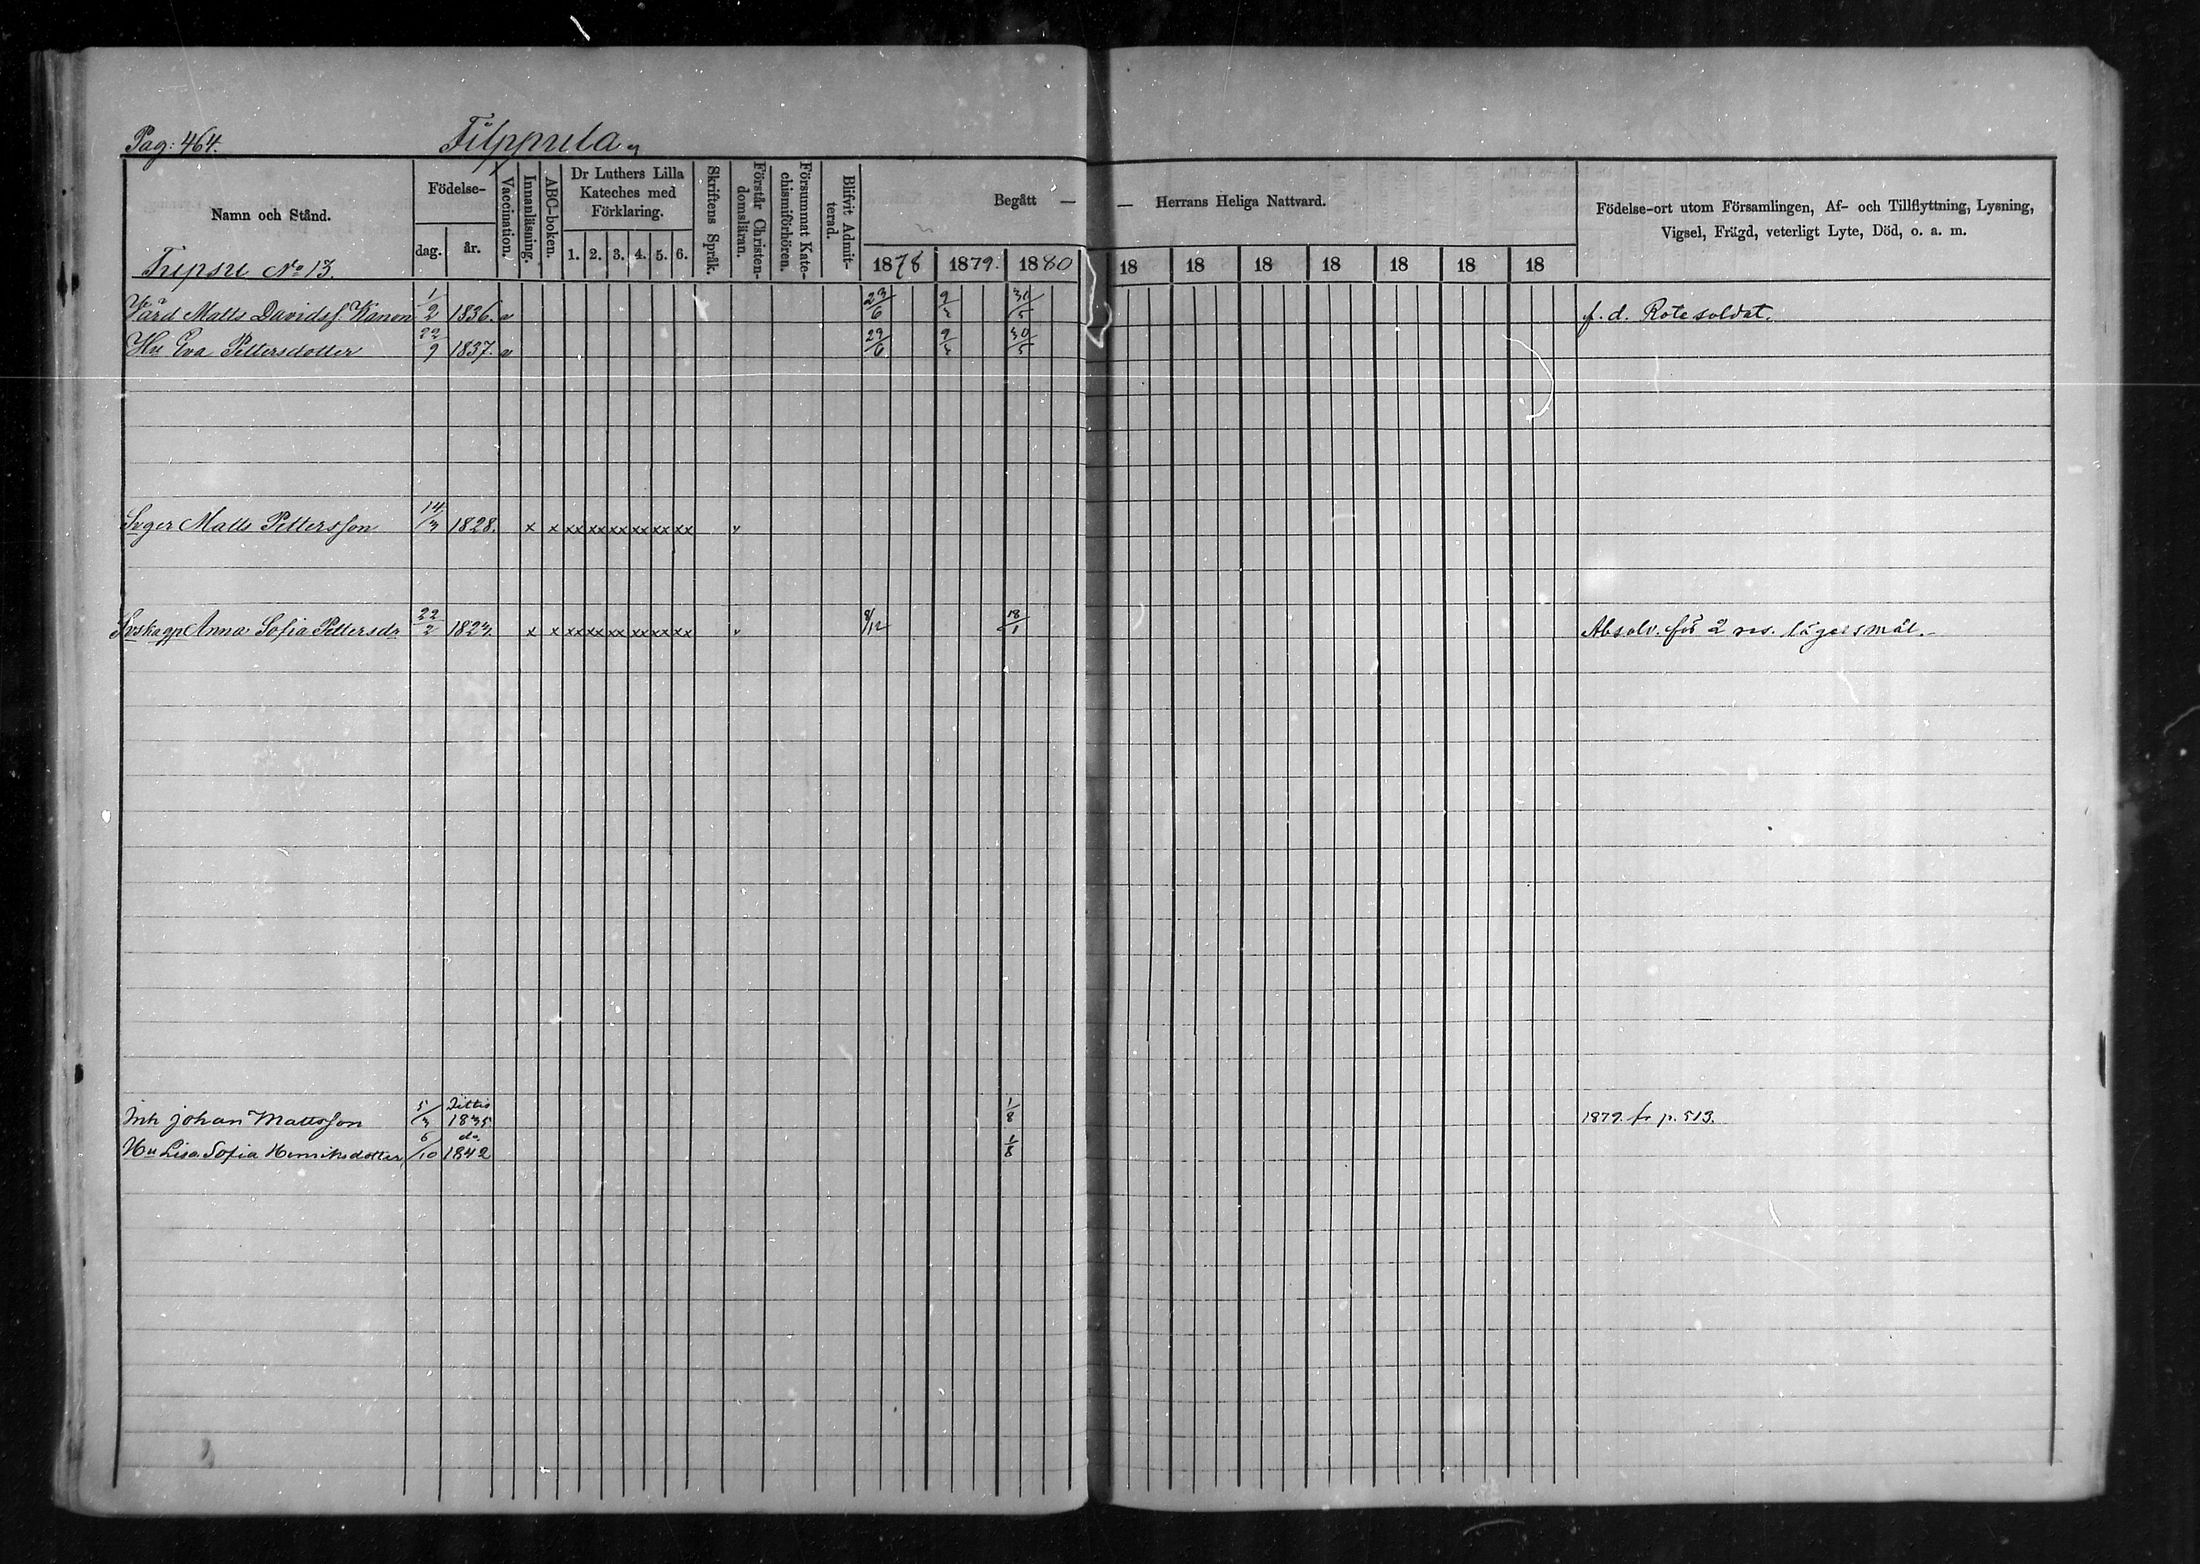 Pag: 464. Filppula
Namn och Stånd.
Födelse-
dag. år.
Vaccination.
Innanläsning.
ABC-boken.
Dr Luthers Lilla
Kateches med
Förklaring.
1. 2. 3. 4. 5. 6.
Skriftens Språk.
Förstår Christen-
domsläran.
Försummat Kate-
chismiförhören.
Blifvit Admit-
terad.
Begått — — Herrans Heliga Nattvard.
1878 1879. 1880 18 18 18 18 18 18 18
Födelse-ort utom Församlingen, Af- och Tillflyttning, Lysning,
Vigsel, Frägd, veterligt Lyte, Död, o. a. m.
No 13.
Matts Davidss. Kanon 1/2 1836. v 23/6 30/5 f. d. Rotesoldat.
Hu Eva Pettersdotter 22/9 1837. v 30/5
Svger Matts Pettersson 14/3 1828. x x xx xx xx xx xx xx v
Anna Sofia Pettersdr 22/2 1823. x x xx xx xx xx xx xx v 9/12 18/1 Absolv. för 2 res. lägersmål.
Inh Johan Mattsson 5/3 Iittis 1835 1/8 1879 fr p. 513.
Hu Lisa Sofia Henriksdotter 6/10 do 1842 1/8